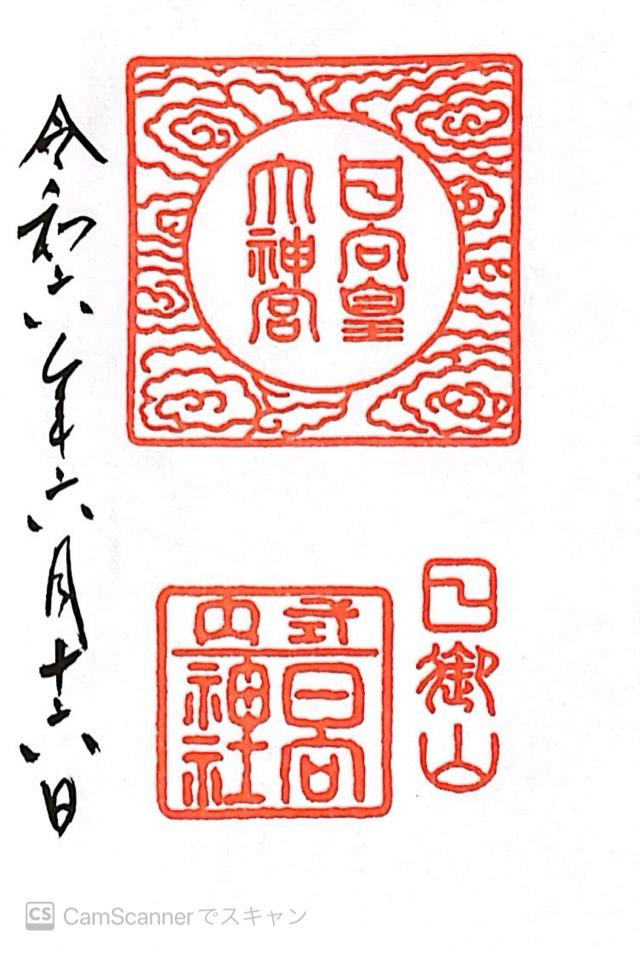 日向皇
大神宮
日御山
式内
日向
神社
令和六年六月十六日
CS CamScannerでスキャン